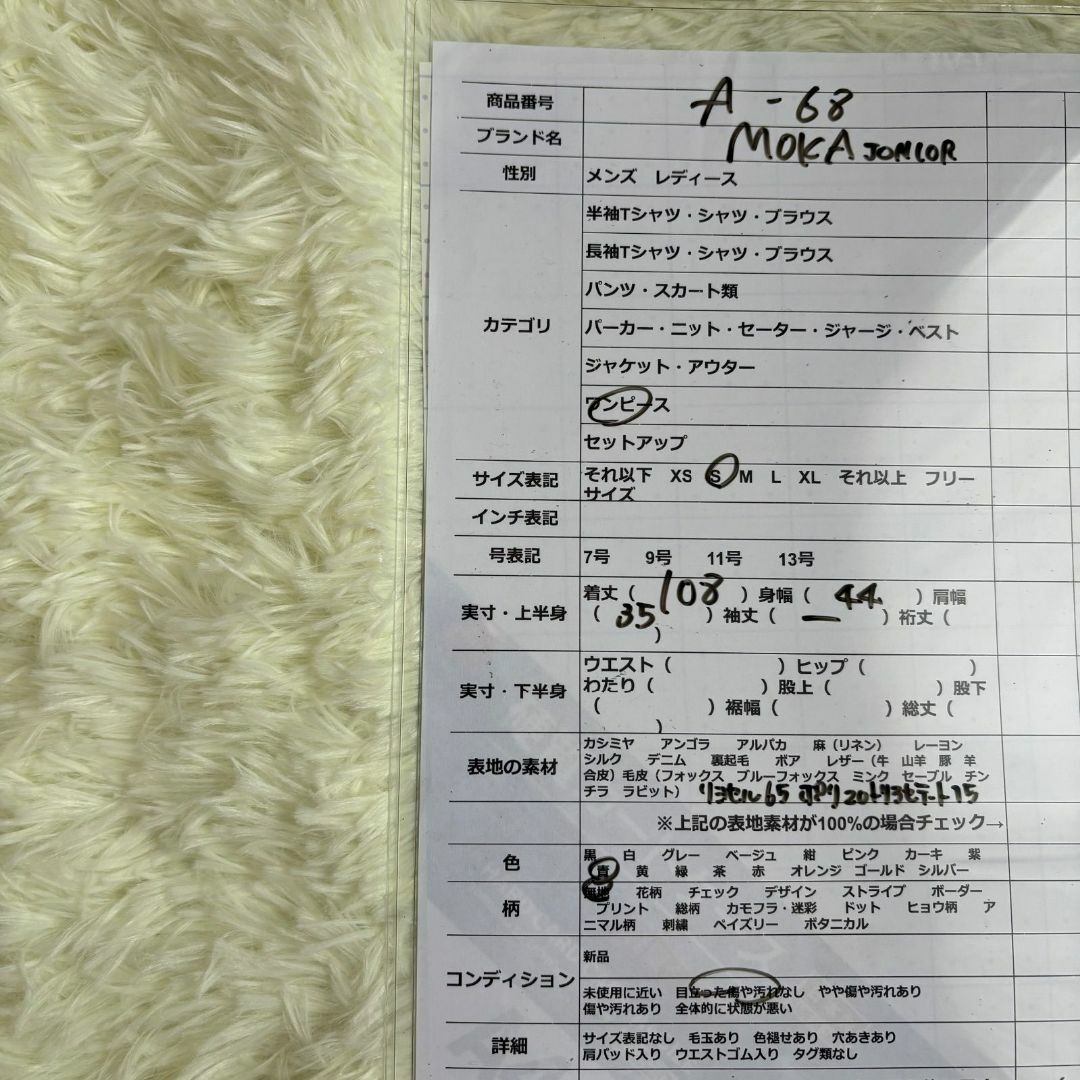 商品番号 A - 68
ブランド名 MOKA JUNIOR
性別 メンズ レディース
カテゴリ
半袖Tシャツ・シャツ・ブラウス
長袖Tシャツ・シャツ・ブラウス
パンツ・スカート類
パーカー・ニット・セーター・ジャージ・ベスト
ジャケット・アウター
ワンピース
セットアップ
サイズ表記 それ以下 XS S M L XL それ以上 フリー
サイズ
インチ表記
号表記 7号 9号 11号 13号
実寸・上半身 着丈（ 108 ）身幅（ 44 ）肩幅
（ 35 ）袖丈（ ー ）裄丈（
）
実寸・下半身 ウエスト（ ）ヒップ（ ）
わたり（ ）股上（ ）股下
（ ）裾幅（ ）総丈（
）
表地の素材 カシミヤ アンゴラ アルパカ 麻（リネン） レーヨン
シルク デニム 裏起毛 ボア レザー（牛 山羊 豚 羊
合皮）毛皮（フォックス ブルーフォックス ミンク セーブル チン
チラ ラビット） リヨセル65 ポリ20トリアセテート15
※上記の表地素材が100%の場合チェック→
色 黒 白 グレー ベージュ 紺 ピンク カーキ 紫
青 黄 緑 茶 赤 オレンジ ゴールド シルバー
柄 無地 花柄 チェック デザイン ストライプ ボーダー
プリント 総柄 カモフラ・迷彩 ドット ヒョウ柄 ア
ニマル柄 刺繍 ペイズリー ボタニカル
コンディション 新品
未使用に近い 目立った傷や汚れなし やや傷や汚れあり
傷や汚れあり 全体的に状態が悪い
詳細 サイズ表記なし 毛玉あり 色褪せあり 穴あきあり
肩パッド入り ウエストゴム入り タグ類なし